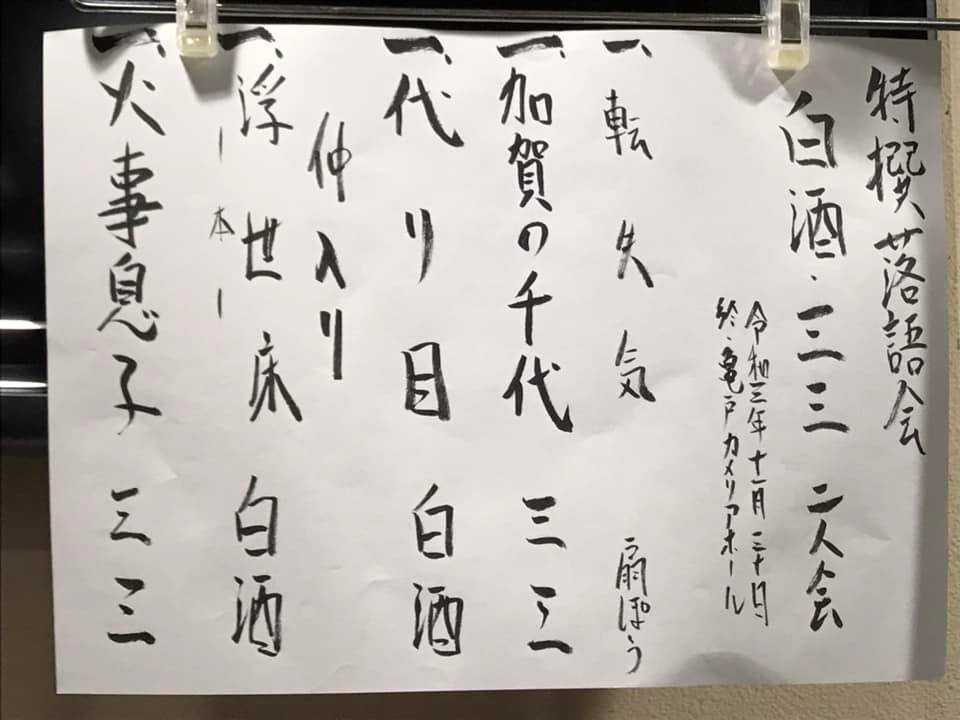 特撰落語会
白酒・三三 二人会
令和三年十一月三十日
於.亀戸カメリアホール
一、転失気 扇ぽう
一、加賀の千代 三三
一、代り目 白酒
仲入り
一、浮世床 白酒
－本－
一、火事息子 三三